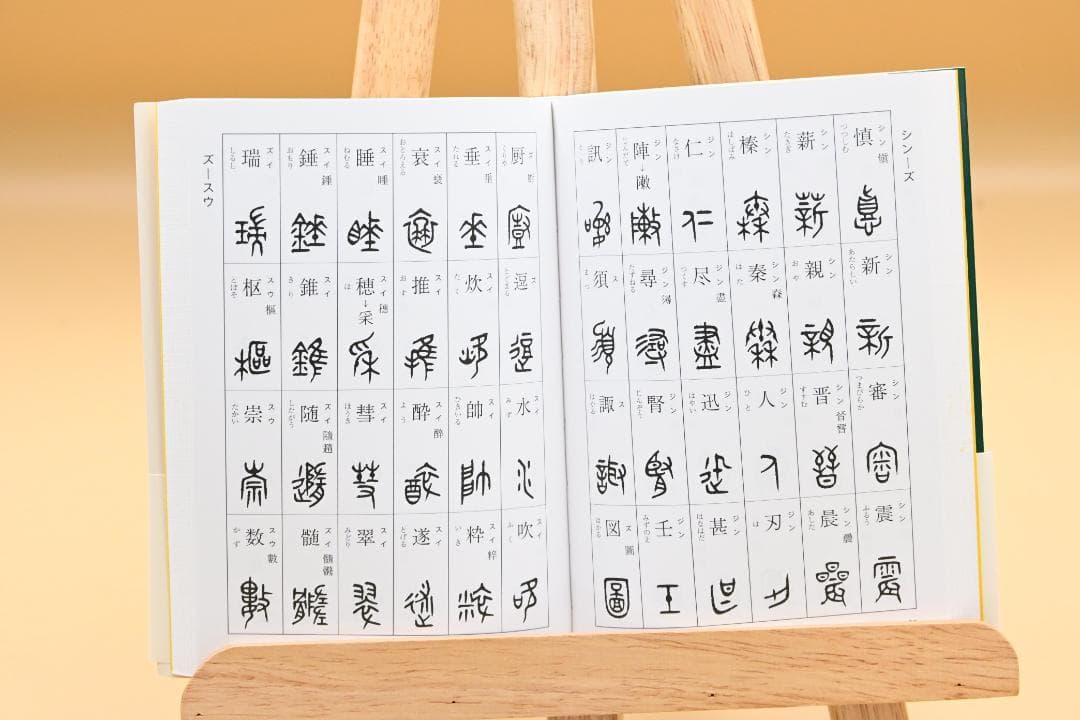 シンーズ
慎 シン 愼 つつしむ
新 シン あたらしい
審 シン つまびらか
震 シン ふるう
薪 シン たきぎ
親 シン おや
晋 シン すすむ
晨 シン あした
榛 シン はしばみ
秦 シン はた
人 ジン ひと
刃 ジン は
仁 ジン なさけ
尽 ジン 盡 つくす
迅 ジン はやい
甚 ジン はなはだ
陣 ジン
尋 ジン たずねる
腎 ジン じんぞう
壬 ジン みずのえ
訊 ジン とう
須 ス まつ
諏 ス はかる
図 ズ 圖 はかる
厨 ズ くりや
逗 ズ とどまる
水 スイ みず
吹 スイ ふく
垂 スイ たれる
炊 スイ たく
帥 スイ ひきいる
粋 スイ 粹 いき
衰 スイ おとろえる
推 スイ おす
酔 スイ 醉 よう
遂 スイ とげる
睡 スイ ねむる
穂→采 スイ 穗 ほ
彗 スイ ほうき
翠 スイ みどり
錘 スイ おもり
錐 スイ きり
随 ズイ 隨 したがう
髄 ズイ
瑞 ズイ しるし
枢 スウ 樞 とぼそ
崇 スウ たかい
数 スウ 數 かず
ズースウ